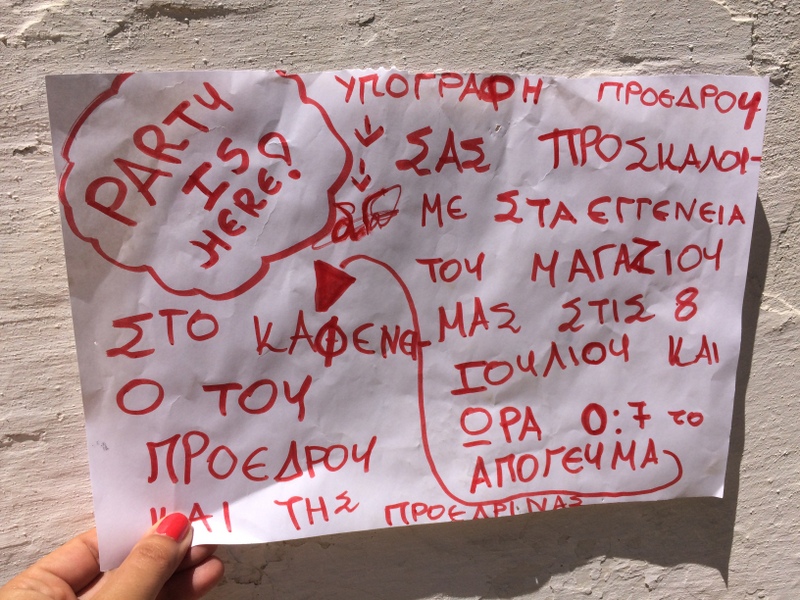 PARTY
IS
HERE!
ΥΠΟΓΡΑΦΗ ΠΡΟΕΔΡΟΥ
ΣΑΣ ΠΡΟΣΚΑΛΟΥ-
ΜΕ ΣΤΑ ΕΓΓΕΝΕΙΑ
ΤΟΥ ΜΑΓΑΖΙΟΥ
ΜΑΣ ΣΤΙΣ 8
ΙΟΥΛΙΟΥ ΚΑΙ
ΩΡΑ 0:7 το
ΑΠΟΓΕΥΜΑ
ΣΤΟ ΚΑΦΕΝΕ-
Ο ΤΟΥ
ΠΡΟΕΔΡΟΥ
ΚΑΙ ΤΗΣ ΠΡΟΕΔΡΙΝΑΣ